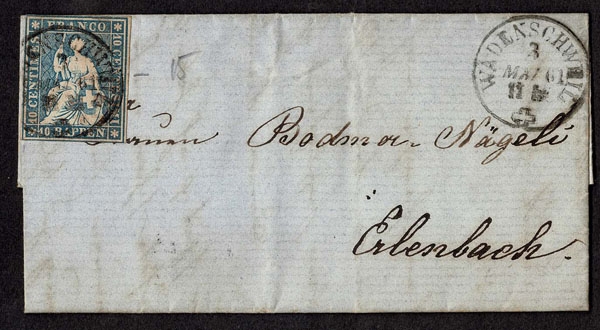 FRANCO
10 CENTIMES
10 CENT
10 RAPPEN
WÄDENSCHWEIL
3
MAI 61
11
– 15
Frauen Bodmer-Nägeli
Erlenbach.